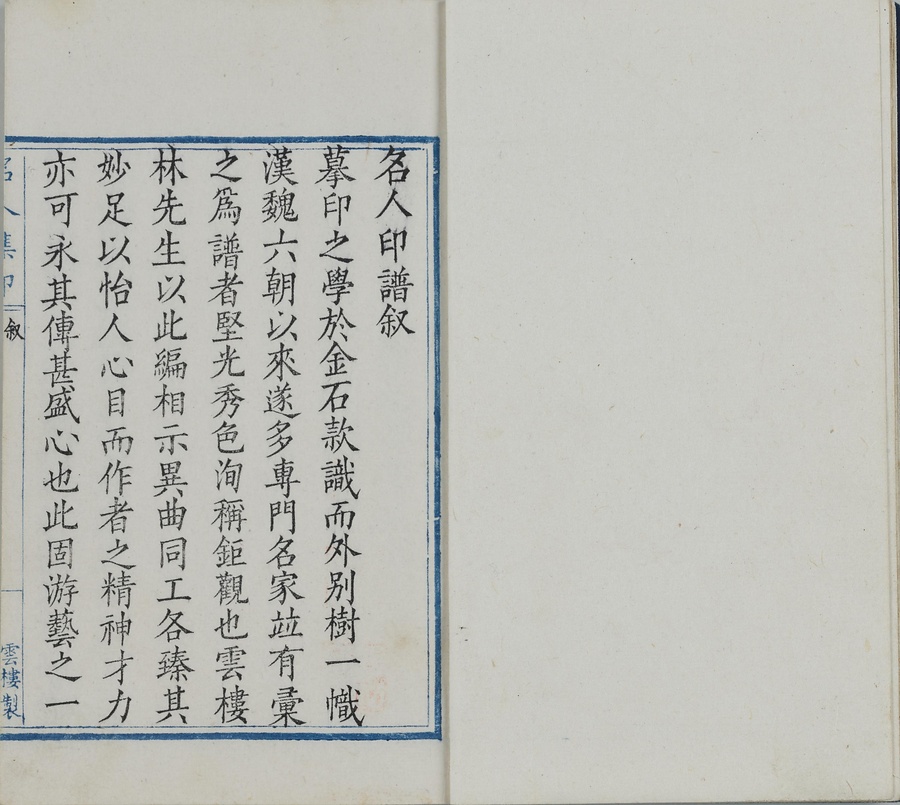 名人印譜叙
摹印之學於金石款識而外别樹一幟
漢魏六朝以來遂多專門名家竝有彙
之爲譜者堅光秀色洵稱鉅觀也雲樓
林先生以此編相示異曲同工各臻其
妙足以怡人心目而作者之精神才力
亦可永其傳甚盛心也此固游藝之一
名人集印
叙
雲樓製